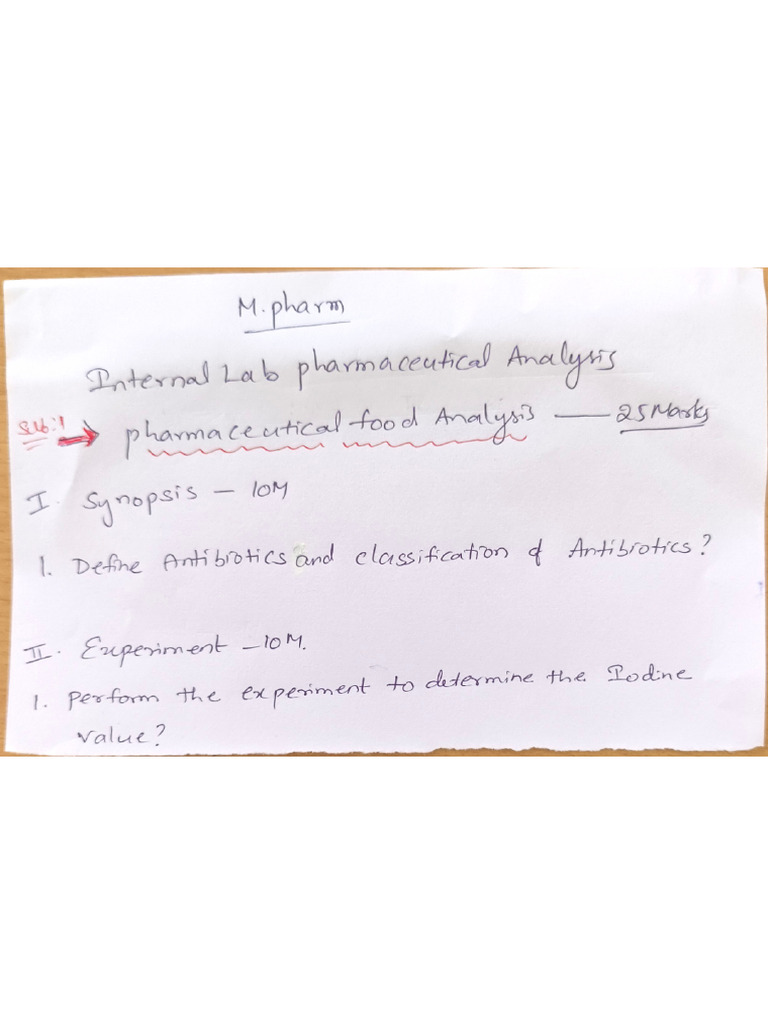 M. pharm
Internal Lab pharmaceutical Analysis
Sub:1 → pharmaceutical food Analysis — 25 Marks
I. Synopsis – 10M
1. Define Antibiotics and classification of Antibiotics?
II. Experiment – 10M.
1. perform the experiment to determine the Iodine
value?